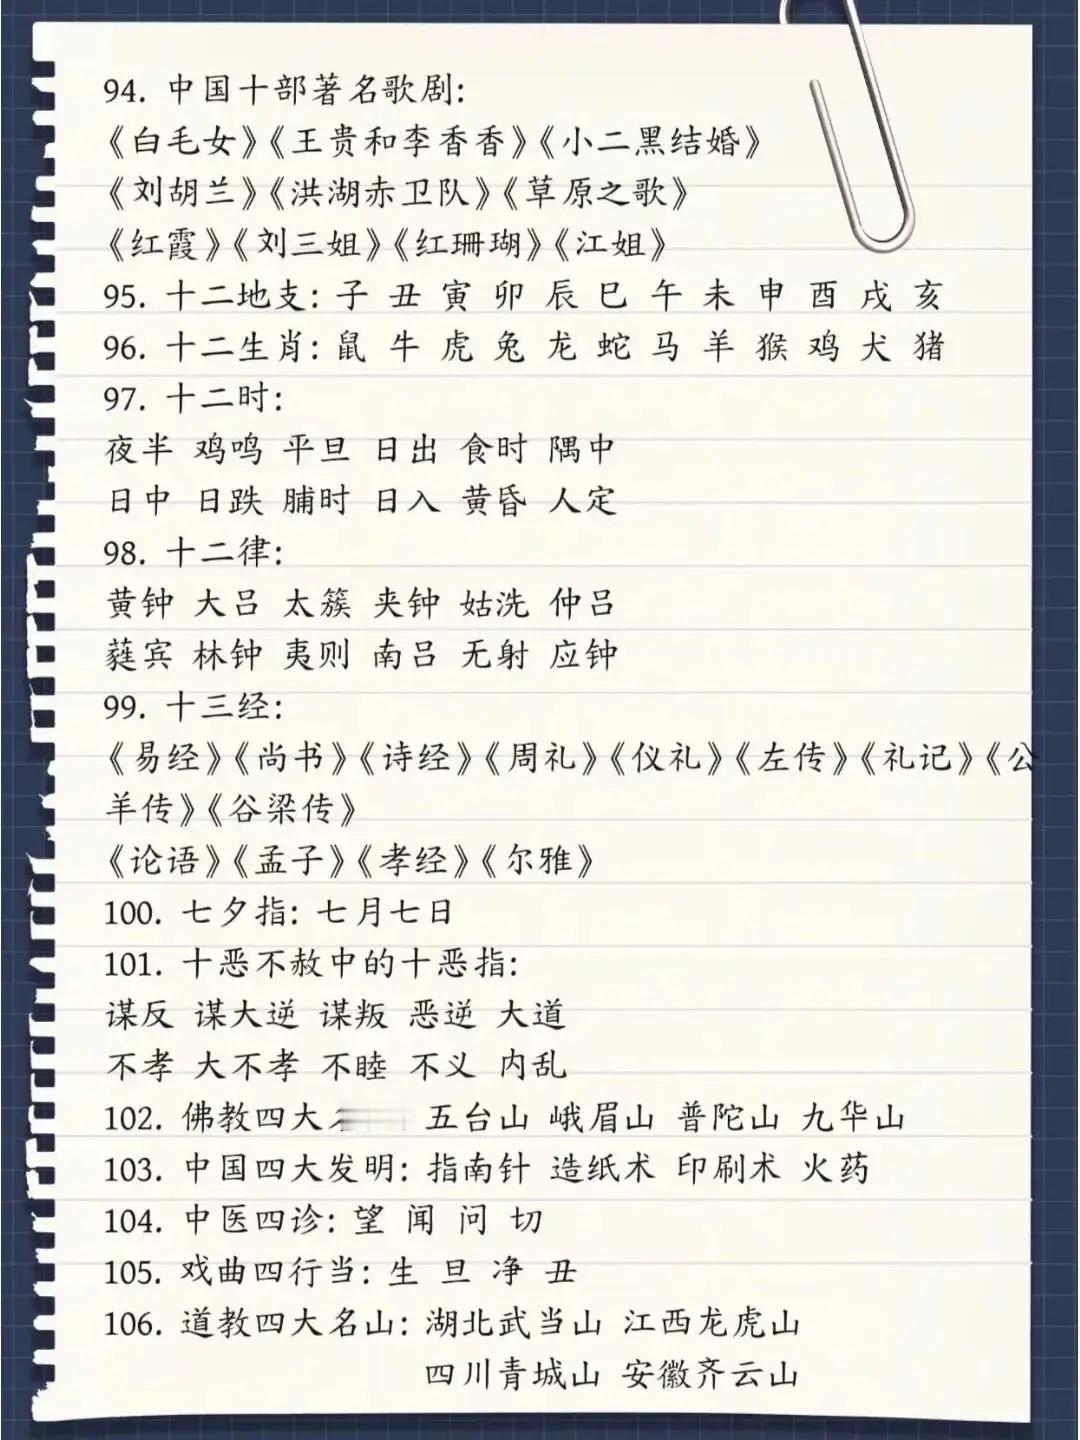 94. 中国十部著名歌剧:
《白毛女》《王贵和李香香》《小二黑结婚》
《刘胡兰》《洪湖赤卫队》《草原之歌》
《红霞》《刘三姐》《红珊瑚》《江姐》
95. 十二地支: 子 丑 寅 卯 辰 巳 午 未 申 酉 戌 亥
96. 十二生肖: 鼠 牛 虎 兔 龙 蛇 马 羊 猴 鸡 犬 猪
97. 十二时:
夜半 鸡鸣 平旦 日出 食时 隅中
日中 日跌 脯时 日入 黄昏 人定
98. 十二律:
黄钟 大吕 太簇 夹钟 姑洗 仲吕
蕤宾 林钟 夷则 南吕 无射 应钟
99. 十三经:
《易经》《尚书》《诗经》《周礼》《仪礼》《左传》《礼记》《公
羊传》《谷梁传》
《论语》《孟子》《孝经》《尔雅》
100. 七夕指: 七月七日
101. 十恶不赦中的十恶指:
谋反 谋大逆 谋叛 恶逆 大道
不孝 大不孝 不睦 不义 内乱
102. 佛教四大 五台山 峨眉山 普陀山 九华山
103. 中国四大发明: 指南针 造纸术 印刷术 火药
104. 中医四诊: 望 闻 问 切
105. 戏曲四行当: 生 旦 净 丑
106. 道教四大名山: 湖北武当山 江西龙虎山
四川青城山 安徽齐云山